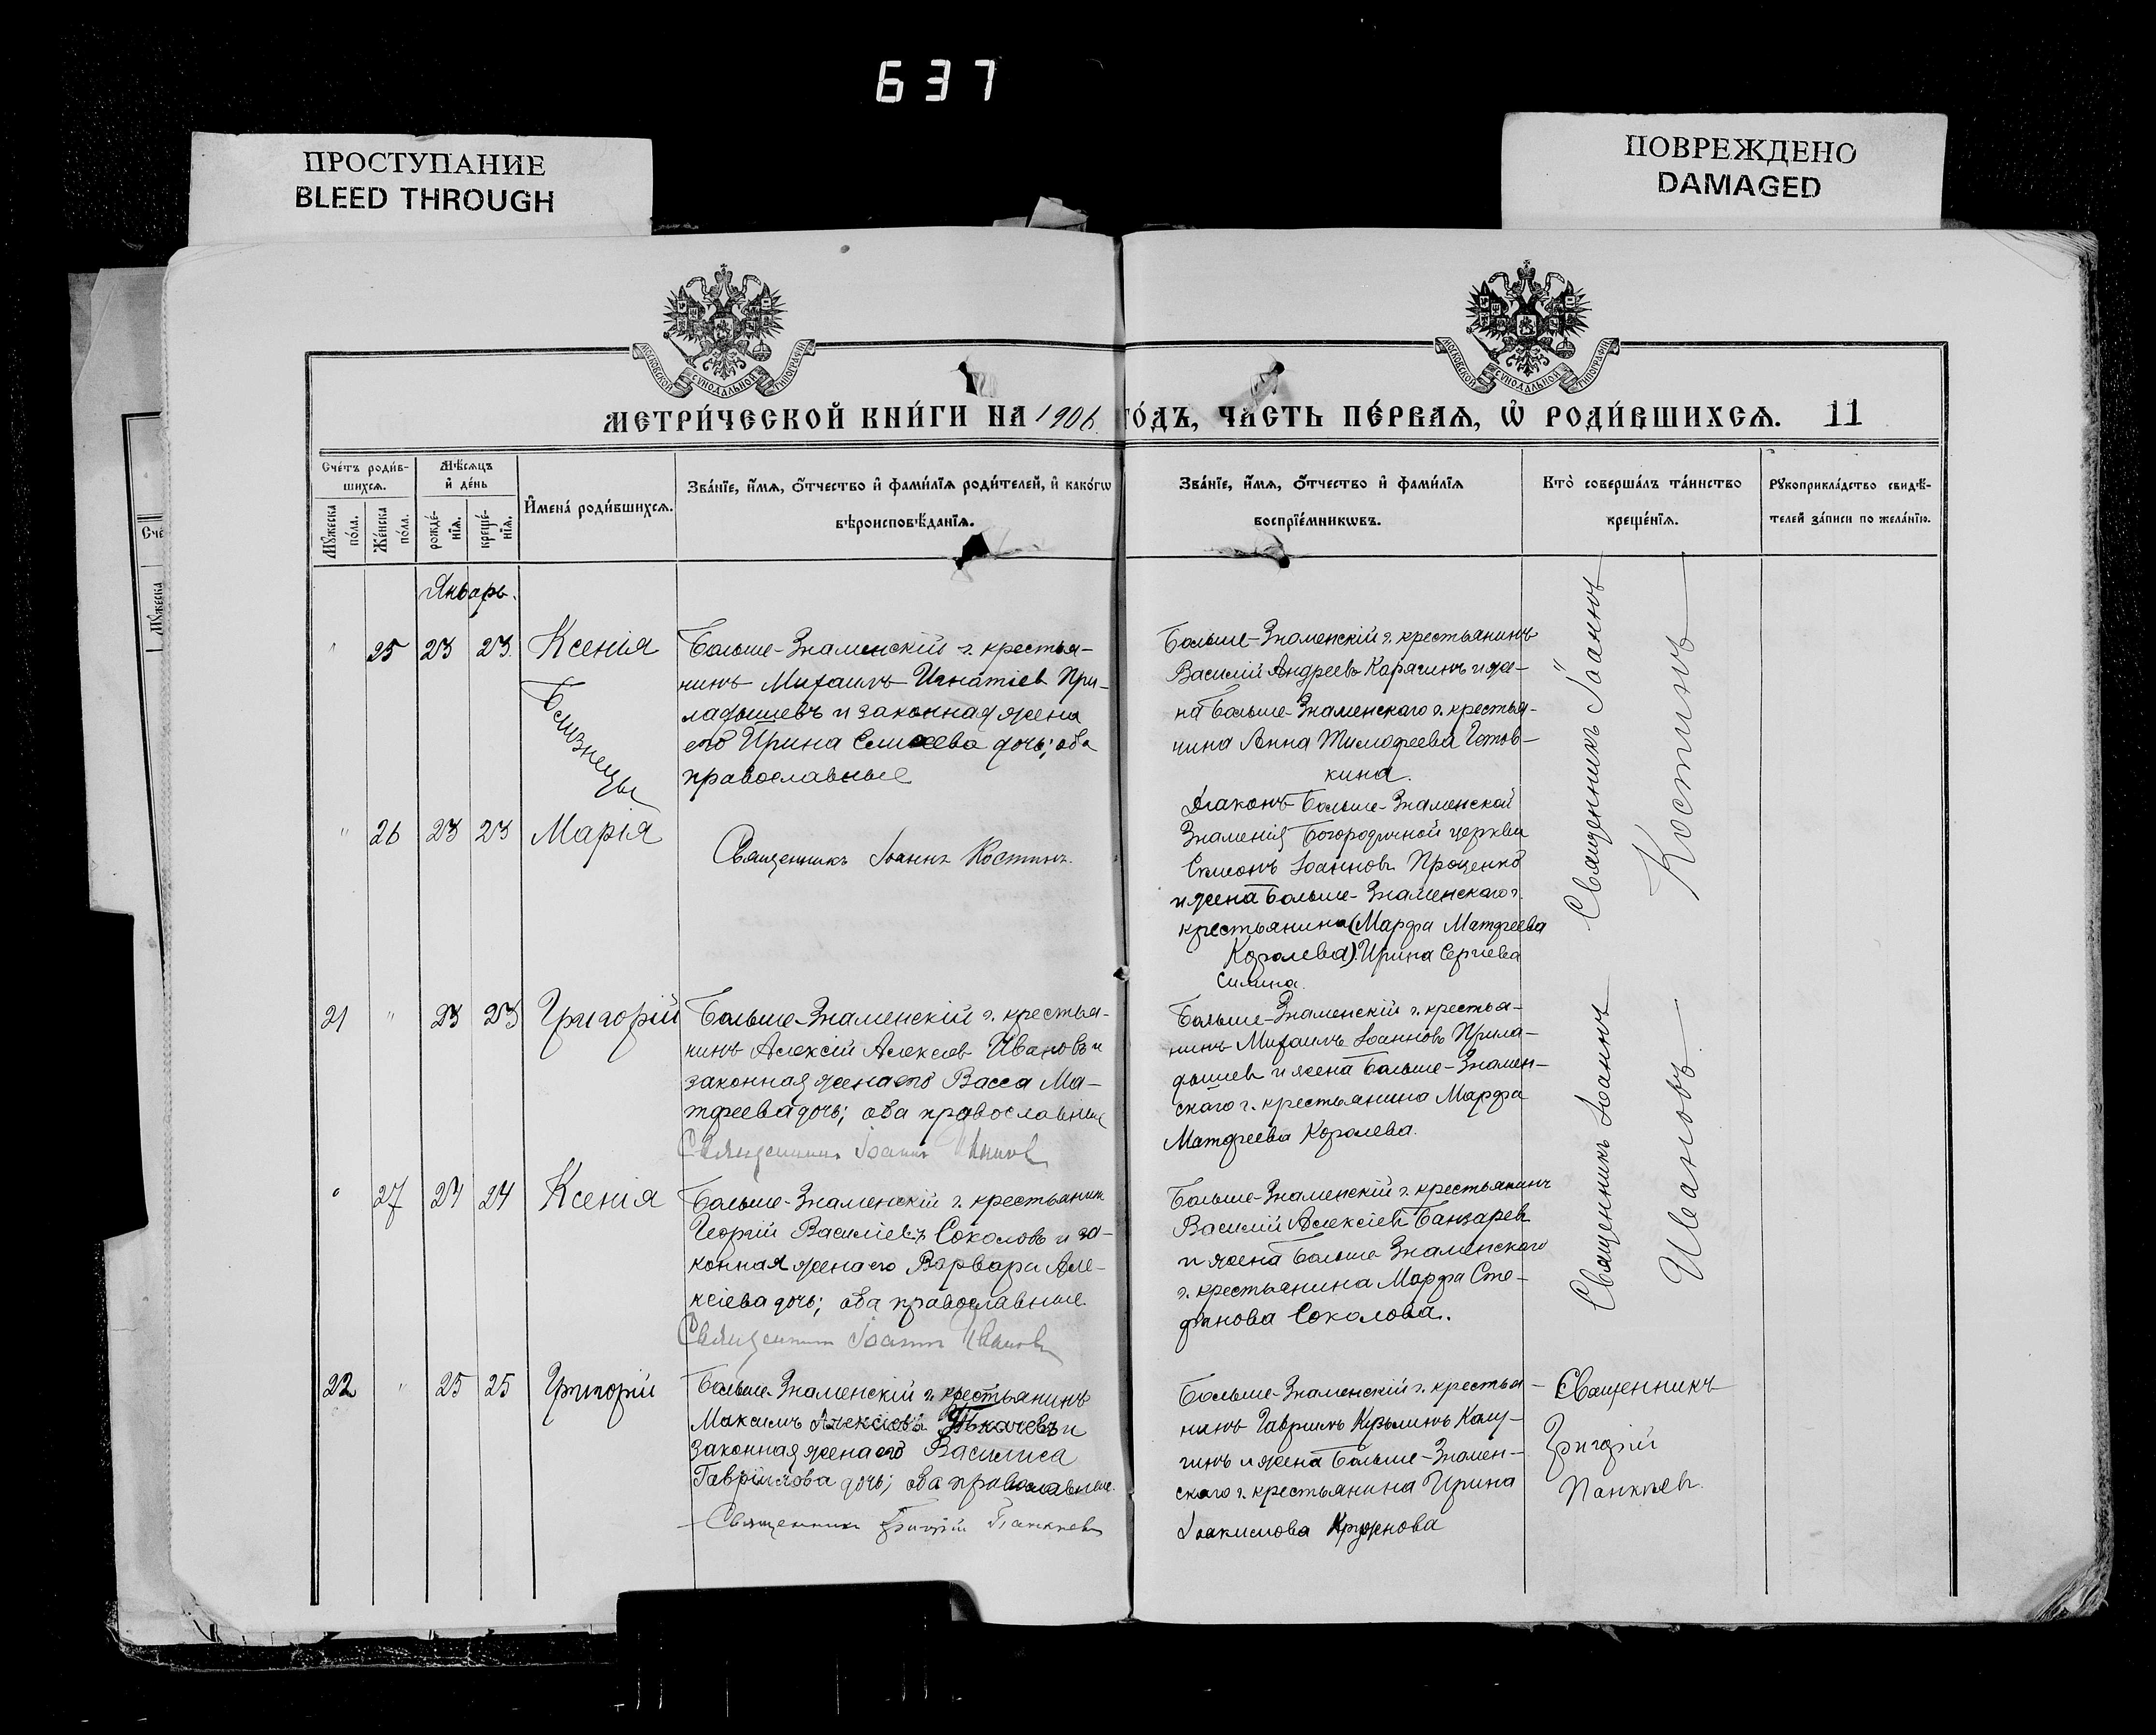 637
ПРОСТУПАНИЕ
BLEED THROUGH
ПОВРЕЖДЕНО
DAMAGED
МОСКОВСКОЙ СѴНОДАЛЬНОЙ ТИПОГРАФІИ
МОСКОВСКОЙ СѴНОДАЛЬНОЙ ТИПОГРАФІИ
МЕТРИ́ЧЕСКОЙ КНИ́ГИ НА 1906 ГО́ДЪ, ЧА́СТЬ ПЕ́РВАѦ, Ѡ҆ РОДИ́ВШИХСѦ. 11
Сче́тъ роди́в-
шихсѧ.
Мꙋ́жеска по́ла.
Же́нска по́ла.
Мѣ́сѧцъ
и҆ де́нь
рожде́-нїѧ.
креще́-нїѧ.
И҆мена̀ роди́вшихсѧ.
Зва́нїе, и҆́мѧ, ѻ҆́тчество и҆ фами́лїѧ роди́телей, и҆ како́гѡ
вѣроисповѣ́данїѧ.
Зва́нїе, и҆́мѧ, ѻ҆́тчество и҆ фами́лїѧ
воспрїе́мникѡвъ.
Кто̀ соверша́лъ та́инство
креще́нїѧ.
Рꙋкоприкла́дство свидѣ́-
телей за́писи по жела́нїю.
Январь.
" 25 23 23 Ксенія
Близнецы
Больше-Знаменскій г. крестья-
нинъ Михаилъ Игнатіев При-
ладышевъ и законная жена
его Ирина Елисеева дочь; оба
православные
Больше-Знаменскій г. крестьянинъ
Василій Андреевъ Карагинъ и же-
на Больше-Знаменскаго г. крестья-
нина Анна Тимофеева
кина.
Священникъ Іоаннъ
Костинъ
" 26 23 23 Марія
Священникъ Іоаннъ Костинъ.
Діаконъ Больше-Знаменской
Знаменія Богородичной церкви
Симеонъ Іоанновъ Проценко
и жена Больше-Знаменскаго г.
крестьянина (Марфа Матфеева
Королева). Ирина Сергіева
Силина.
21 " 23 23 Григорій
Больше-Знаменскій г. крестья-
нинъ Алексій Алексіев Ивановъ и
законная жена его Васса Ма-
тфеева дочь; оба православные
Священникъ Іоаннъ Иванов
Больше-Знаменскій г. крестья-
нинъ Михаилъ Іоанновъ Прила-
дышев и жена Больше-Знамен-
скаго г. крестьянина Марфа
Матфеева Королева.
Священникъ Іоаннъ
Ивановъ
" 27 24 24 Ксенія
Больше-Знаменскій г. крестьянин
Георгій Василіевъ Соколовъ и за-
конная жена его Варвара Але-
ксіева дочь; оба православные.
Священник Іоаннъ Ивановъ
Больше-Знаменскій г. крестьянинъ
Василій Алексіев Банзарев
и жена Больше Знаменскаго
г. крестьянина Марфа Сте-
фанова Соколова.
22 " 25 25 Григорій
Больше-Знаменскій г. крестьянинъ
Максимъ Алексіевъ Ткачевъ и
законная жена его Василиса
Гавріилова дочь; оба православные.
Священникъ Григорій Панкѣев
Больше-Знаменскій г. крестья-
нинъ Гавріилъ Калу-
гинъ и жена Больше-Знамен-
скаго г. крестьянина Ирина
Іоакимова Кружнова
Священникъ
Григорій
Панкѣев.